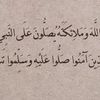 اللَّهَ وَمَلَائِكَتَهُ يُصَلُّونَ عَلَى النَّبِيِّ
الَّذِينَ آمَنُوا صَلُّوا عَلَيْهِ وَسَلِّمُوا